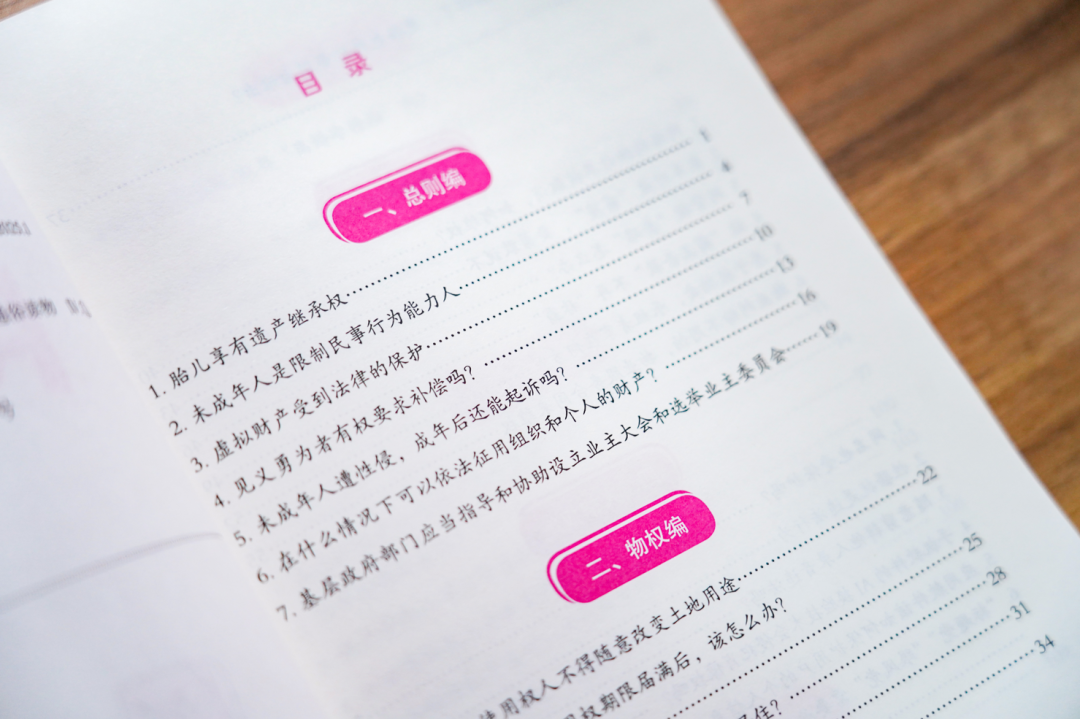 目 录
一、总则编
1. 胎儿享有遗产继承权……1
2. 未成年人是限制民事行为能力人……4
3. 虚拟财产受到法律的保护……7
4. 见义勇为者有权要求补偿吗？……10
5. 未成年人遭性侵，成年后还能起诉吗？……13
6. 在什么情况下可以依法征用组织和个人的财产？……16
7. 基层政府部门应当指导和协助设立业主大会和选举业主委员会……19
二、物权编
使用权人不得随意改变土地用途……22
权期限届满后，该怎么办？……25
……28
住？……31
……34